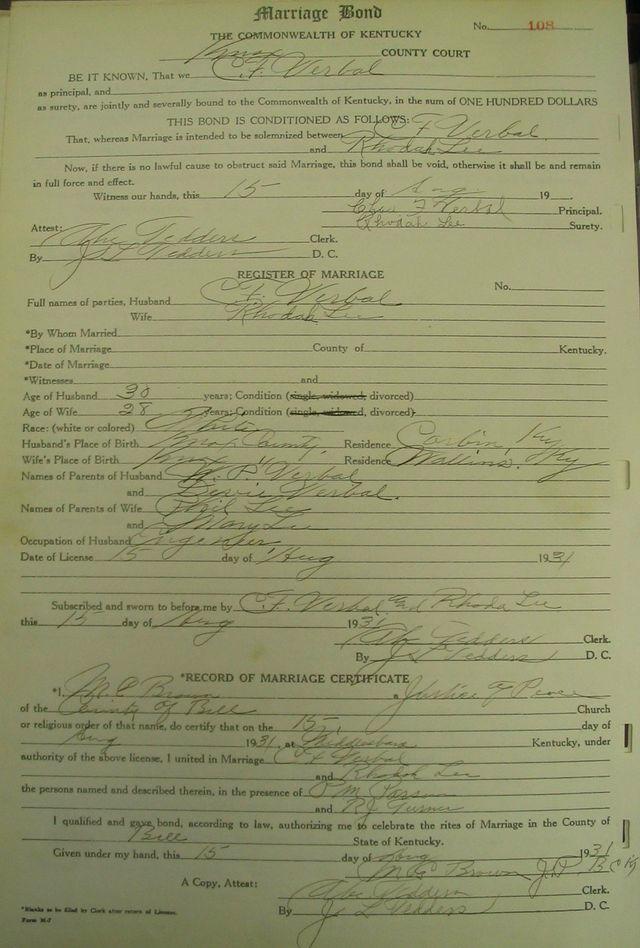 Marriage Bond
No. 108
THE COMMONWEALTH OF KENTUCKY
Knox COUNTY COURT
BE IT KNOWN, That we C. F. Verbal
as principal, and
as surety, are jointly and severally bound to the Commonwealth of Kentucky, in the sum of ONE HUNDRED DOLLARS
THIS BOND IS CONDITIONED AS FOLLOWS:
That, whereas Marriage is intended to be solemnized between C F Verbal
and Rhodah Lee
Now, if there is no lawful cause to obstruct said Marriage, this bond shall be void, otherwise it shall be and remain
in full force and effect.
Witness our hands, this 15 day of Aug 19
F Verbal Principal.
Rhodah Lee Surety.
Attest:
Abe Tedders Clerk.
By J L Tedders D. C.
REGISTER OF MARRIAGE
No.
Full names of parties, Husband C. F. Verbal
Wife Rhodah Lee
*By Whom Married
*Place of Marriage County of Kentucky.
*Date of Marriage
*Witnesses and
Age of Husband 30 years; Condition (single, widowed, divorced)
Age of Wife 28 years; Condition (single, widowed, divorced)
Race: (white or colored) White
Husband's Place of Birth Knox County, Residence Corbin, Ky
Wife's Place of Birth Knox " Residence Wallins, Ky
Names of Parents of Husband W. P. Verbal
and Verbal.
Names of Parents of Wife Phil Lee
and Mary Lee
Occupation of Husband
Date of License 15 day of Aug 1931
Subscribed and sworn to before me by C. F. Verbal and Rhoda Lee
this 15 day of Aug 1931
Abe Tedders Clerk.
By J L Tedders D. C.
*RECORD OF MARRIAGE CERTIFICATE
*I, M. C Brown a Justice of Peace
of the County of Bell Church
or religious order of that name, do certify that on the 15 day of
Aug 1931, at Middlesboro Kentucky, under
authority of the above license, I united in Marriage C F Verbal
and Rhodah Lee
the persons named and described therein, in the presence of O M
and R J Turner
I qualified and gave bond, according to law, authorizing me to celebrate the rites of Marriage in the County of
Bell State of Kentucky.
Given under my hand, this 15 day of Aug 1931
M C Brown J.P. B C Ky
A Copy, Attest: Abe Tedders Clerk.
By J L Tedders D. C.
*Blanks to be filled by Clerk after return of License.
Form M-7